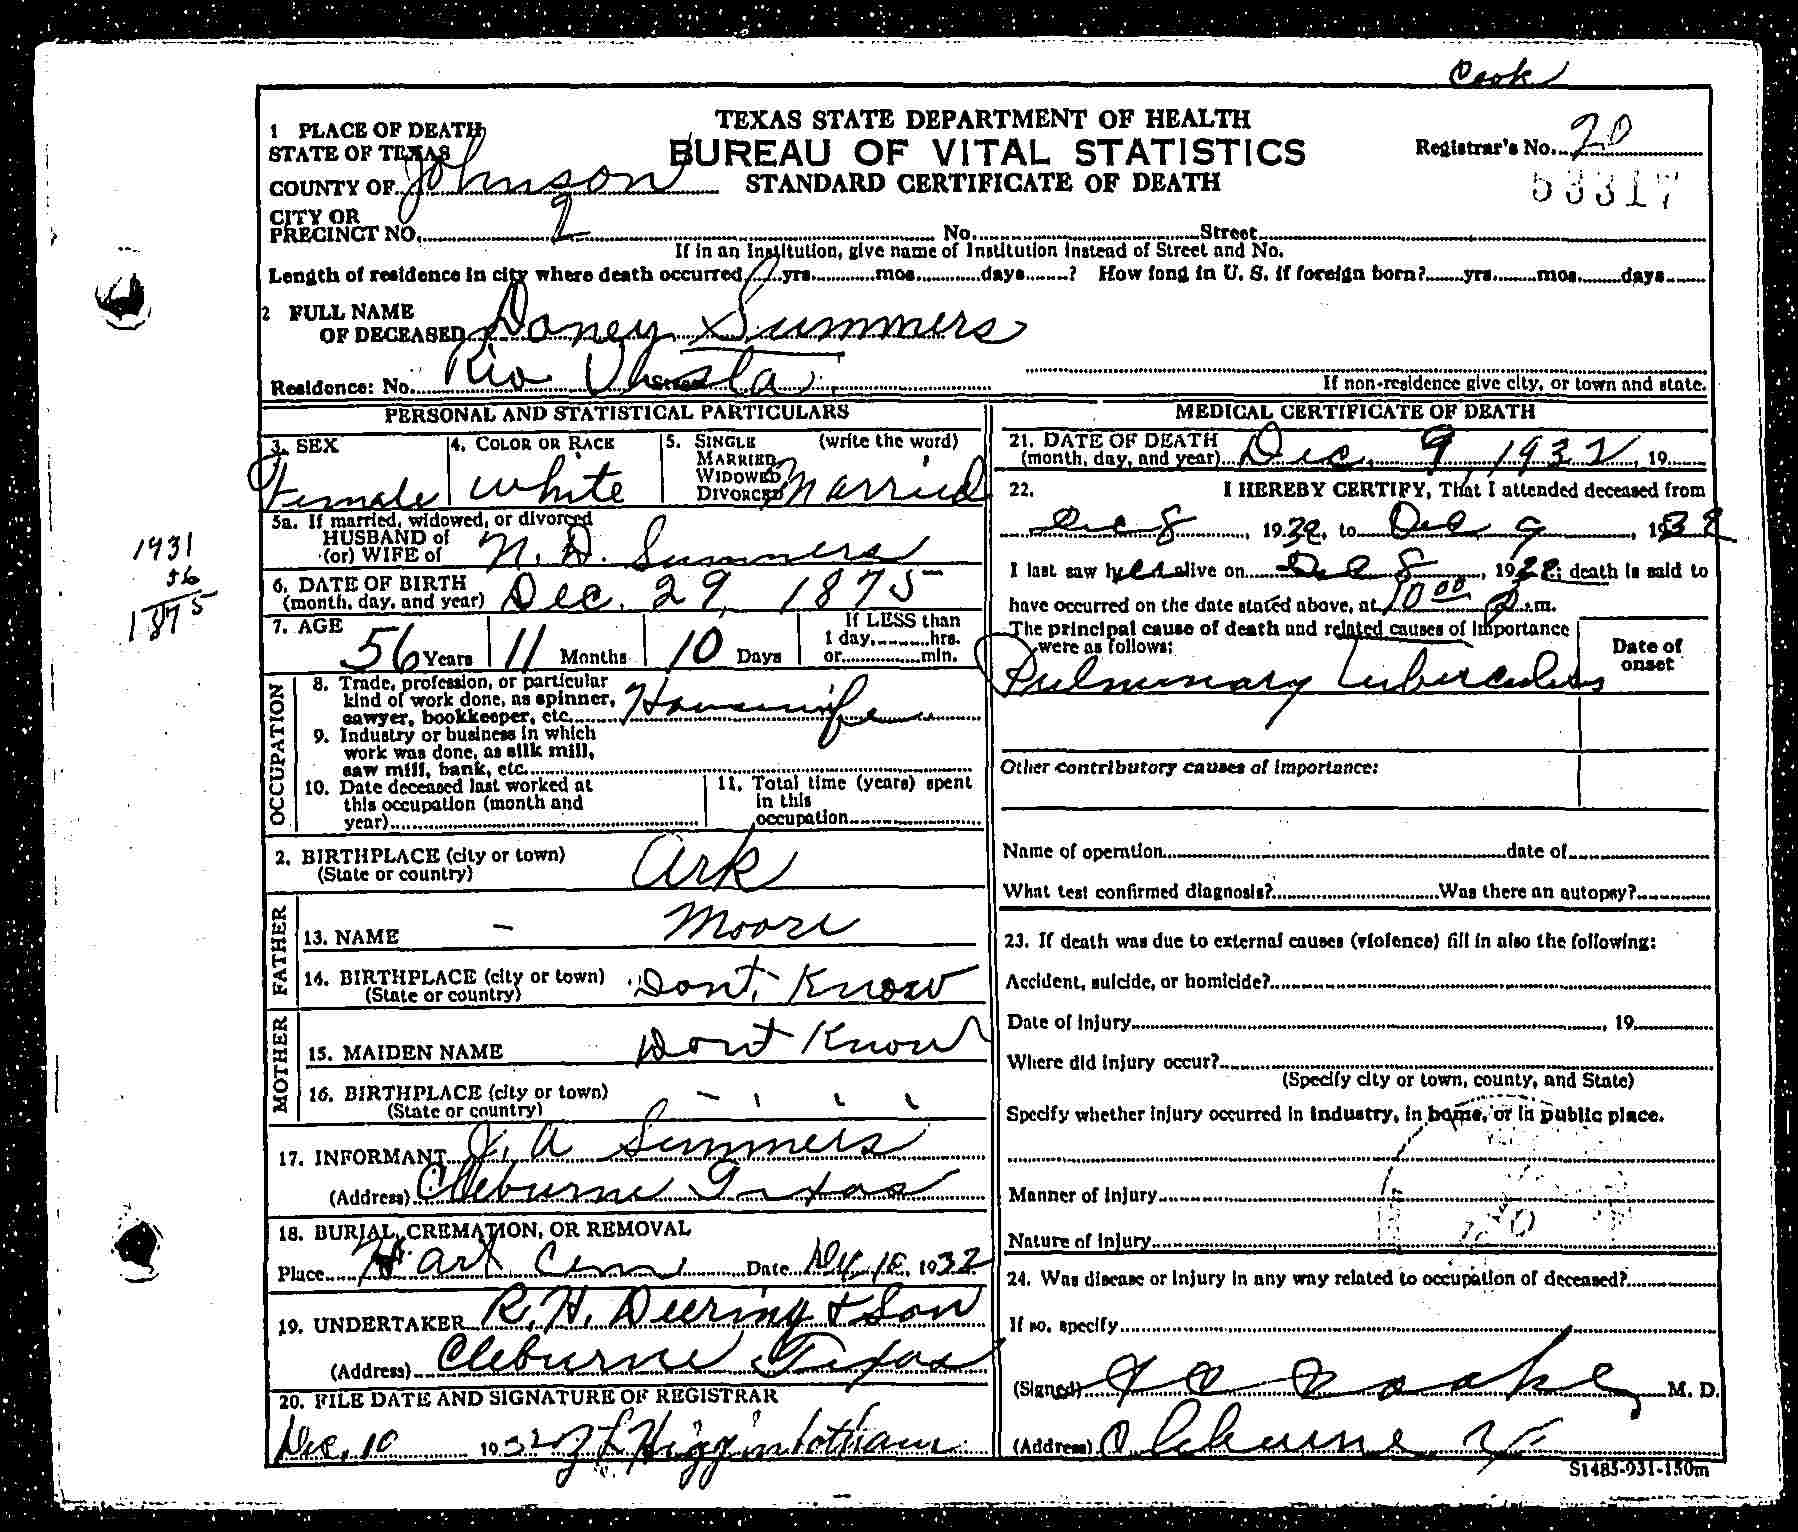 Cook
1 PLACE OF DEATH
STATE OF TEXAS
COUNTY OF Johnson
CITY OR
PRECINCT NO. 2
TEXAS STATE DEPARTMENT OF HEALTH
BUREAU OF VITAL STATISTICS
STANDARD CERTIFICATE OF DEATH
Registrar's No. 20
53317
No. Street
If in an Institution, give name of Institution instead of Street and No.
Length of residence in city where death occurred yrs. mos. days ? How long in U. S. if foreign born? yrs. mos. days
2 FULL NAME
OF DECEASED Doney Summers
Residence: No. Rio Vista Street
If non-residence give city, or town and state.
PERSONAL AND STATISTICAL PARTICULARS
3. SEX Female
4. COLOR OR RACE white
5. SINGLE (write the word)
MARRIED
WIDOWED
DIVORCED Married
5a. If married, widowed, or divorced
HUSBAND of
(or) WIFE of N. D. Summers
1931
56
1875
6. DATE OF BIRTH
(month, day, and year) Dec. 29, 1875
7. AGE 56 Years 11 Months 10 Days
If LESS than
1 day, hrs.
or min.
OCCUPATION
8. Trade, profession, or particular
kind of work done, as spinner,
sawyer, bookkeeper, etc. Housewife
9. Industry or business in which
work was done, as silk mill,
saw mill, bank, etc.
10. Date deceased last worked at
this occupation (month and
year)
11. Total time (years) spent
in this
occupation
2. BIRTHPLACE (city or town)
(State or country) Ark
FATHER
13. NAME - Moore
14. BIRTHPLACE (city or town)
(State or country) Dont Know
MOTHER
15. MAIDEN NAME Dont Know
16. BIRTHPLACE (city or town)
(State or country)
17. INFORMANT J. A Summers
(Address) Cleburne Texas
18. BURIAL, CREMATION, OR REMOVAL
Place Hart Cem Date Dec, 10, 1932
19. UNDERTAKER R. H. Deering & Son
(Address) Cleburne Texas
20. FILE DATE AND SIGNATURE OF REGISTRAR
Dec, 10 1932 Higginbotham
MEDICAL CERTIFICATE OF DEATH
21. DATE OF DEATH
(month, day, and year) Dec. 9, 1932, 19
22. I HEREBY CERTIFY, That I attended deceased from
Dec 8, 1932, to Dec 9, 1932
I last saw her alive on Dec 8, 1932; death is said to
have occurred on the date stated above, at 10 00 P.m.
The principal cause of death and related causes of importance
were as follows:
Date of
onset
Pulmunary Tuberculosis
Other contributory causes of importance:
Name of operation date of
What test confirmed diagnosis? Was there an autopsy?
23. If death was due to external causes (violence) fill in also the following:
Accident, suicide, or homicide?
Date of injury , 19
Where did injury occur?
(Specify city or town, county, and State)
Specify whether injury occurred in industry, in home, or in public place.
Manner of injury
Nature of injury
24. Was disease or injury in any way related to occupation of deceased?
If so, specify
(Signed) M. D.
(Address) Cleburne
S1485-931-150m